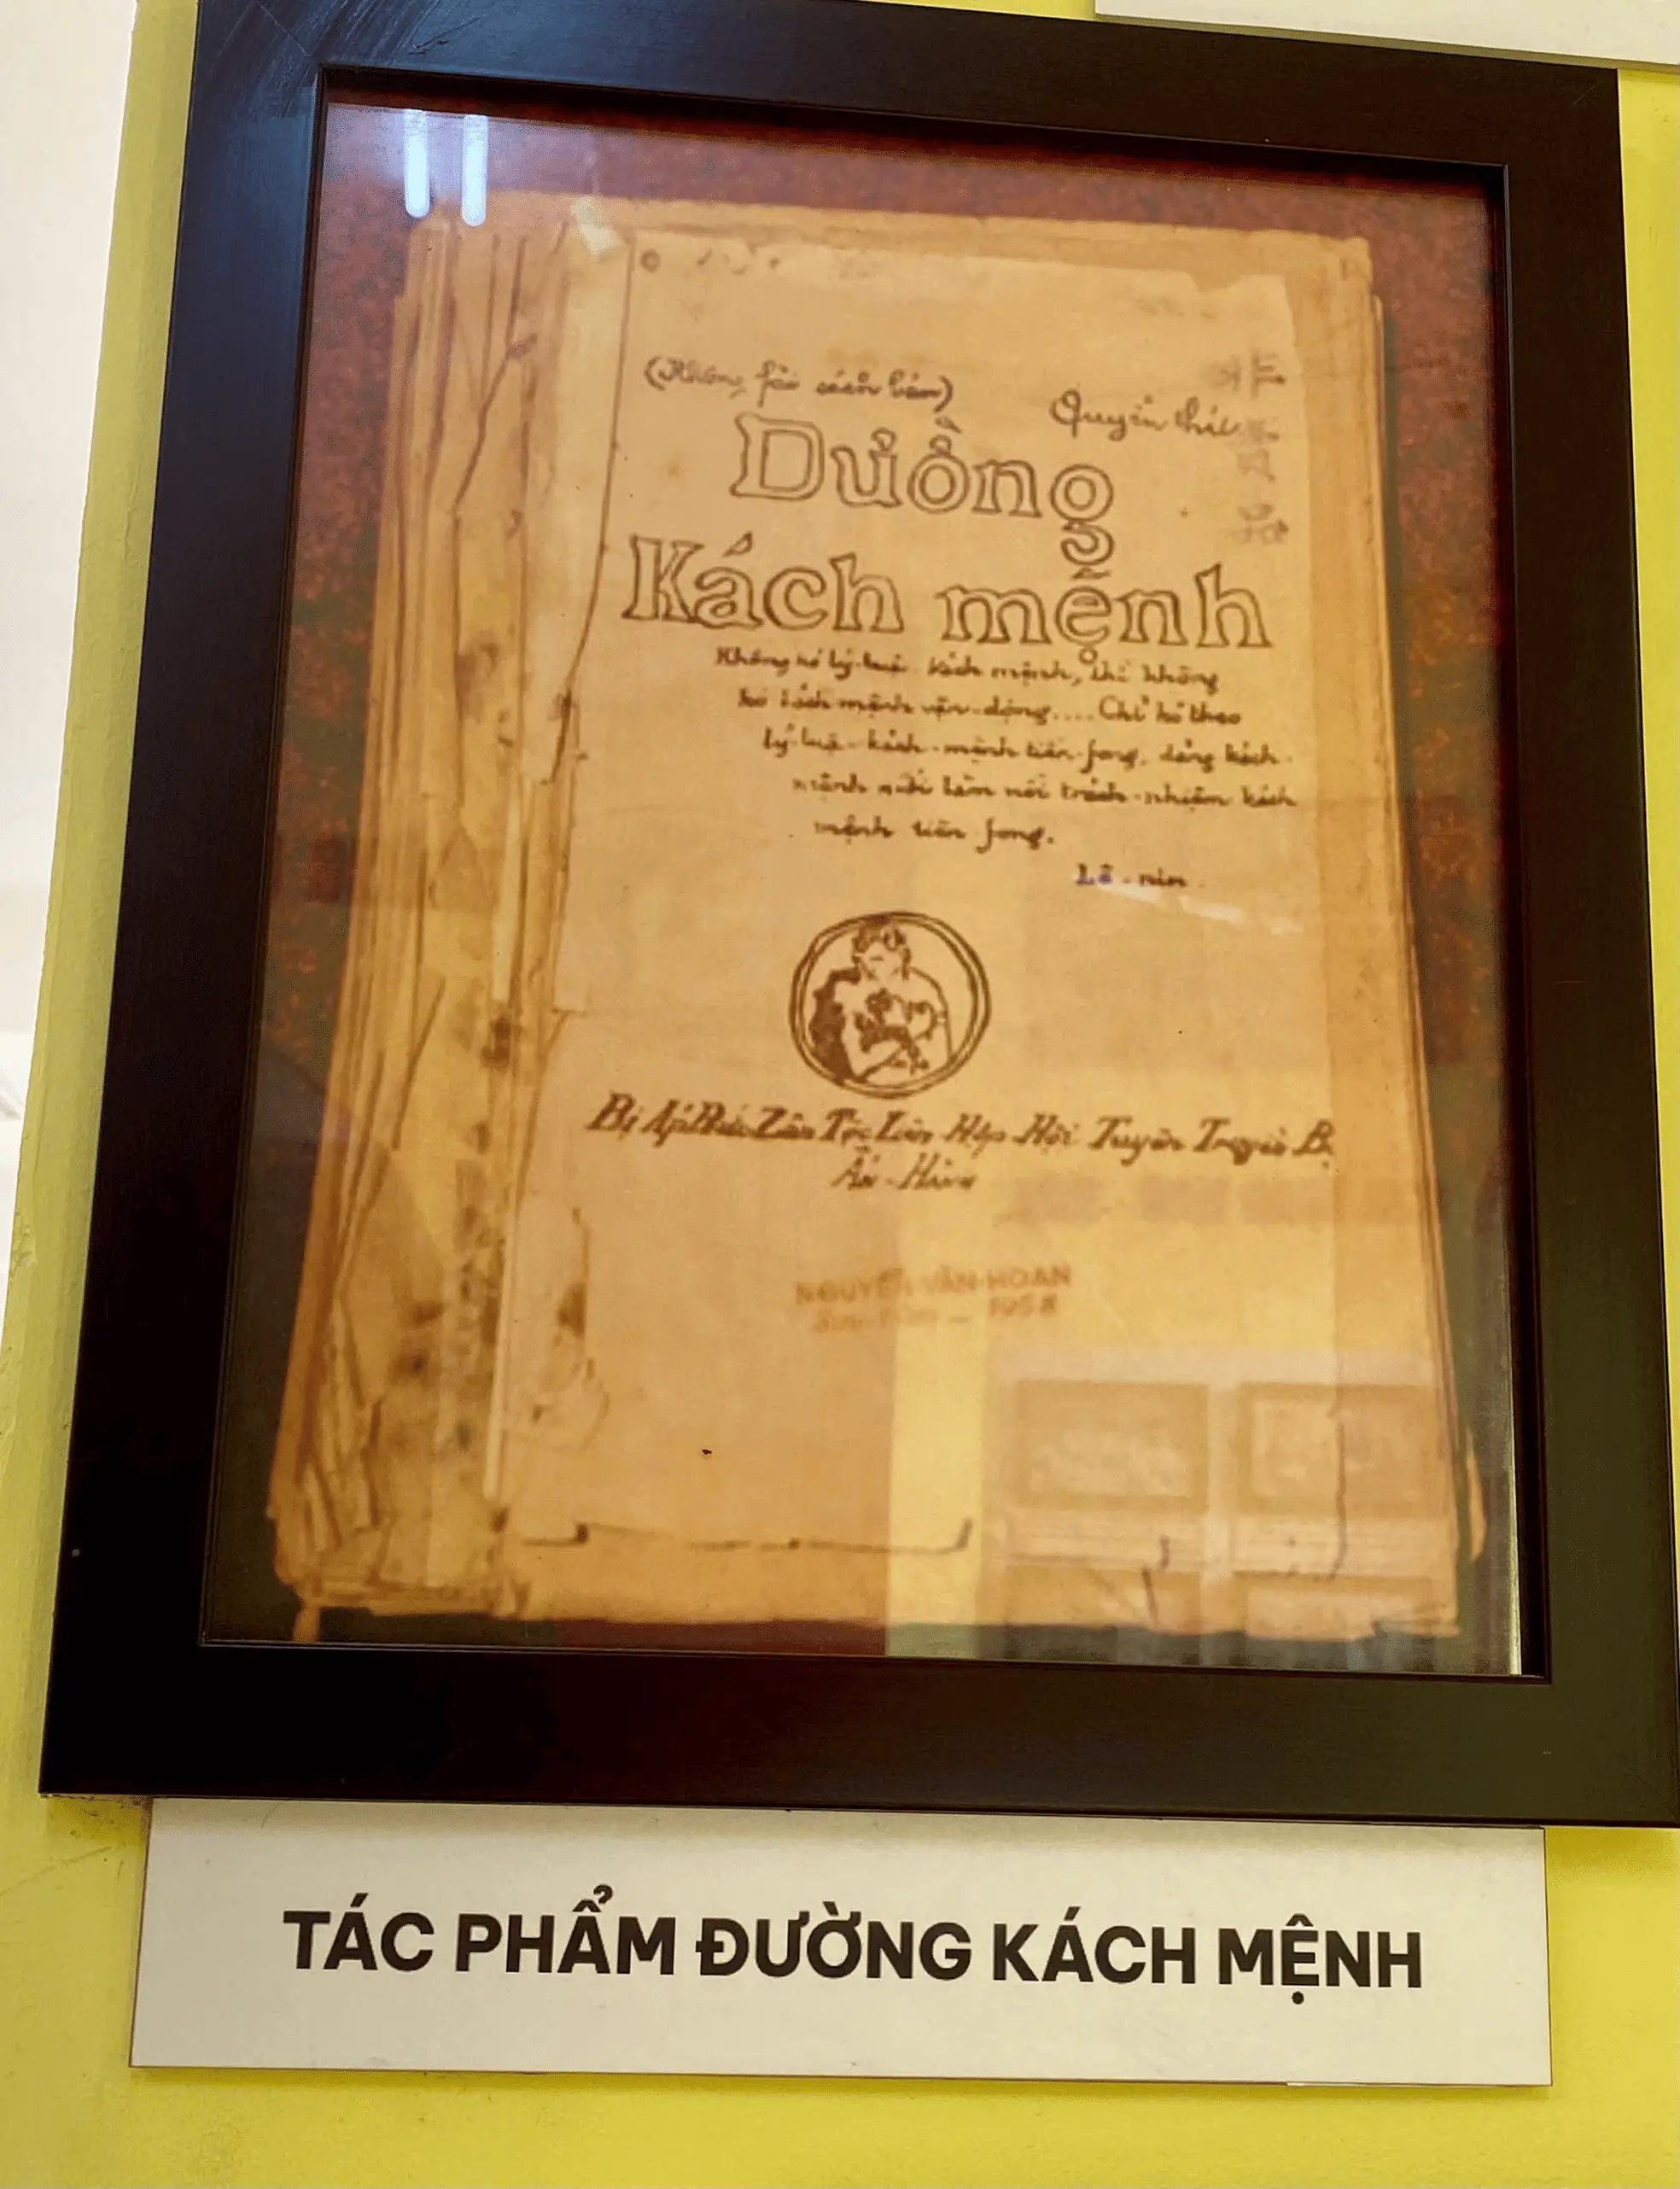 (Không fải sách bán)
Quyển thứ
Dường
Kách mệnh
Không kó lý luận kách mệnh, thì không
kó kách mệnh vận-dộng.... Chỉ kó theo
lý-luận-kách-mệnh tiền-fong, dảng kách
mệnh mới làm nổi trách-nhiệm kách
mệnh tiền fong.
Lê-nin.
Bị Áp Bức Zân Tộc Liên Hợp Hội Tuyên Truyền Bộ
Ấn-Hành
NGUYỄN-VĂN-HOAN
Sưu-tầm — 1958
TÁC PHẨM ĐƯỜNG KÁCH MỆNH